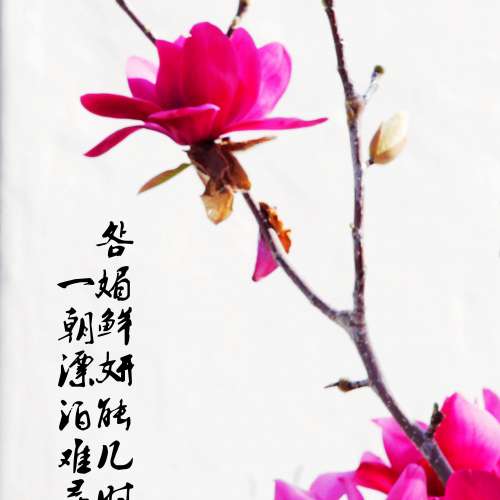 明媚鲜妍能几时
一朝漂泊难寻